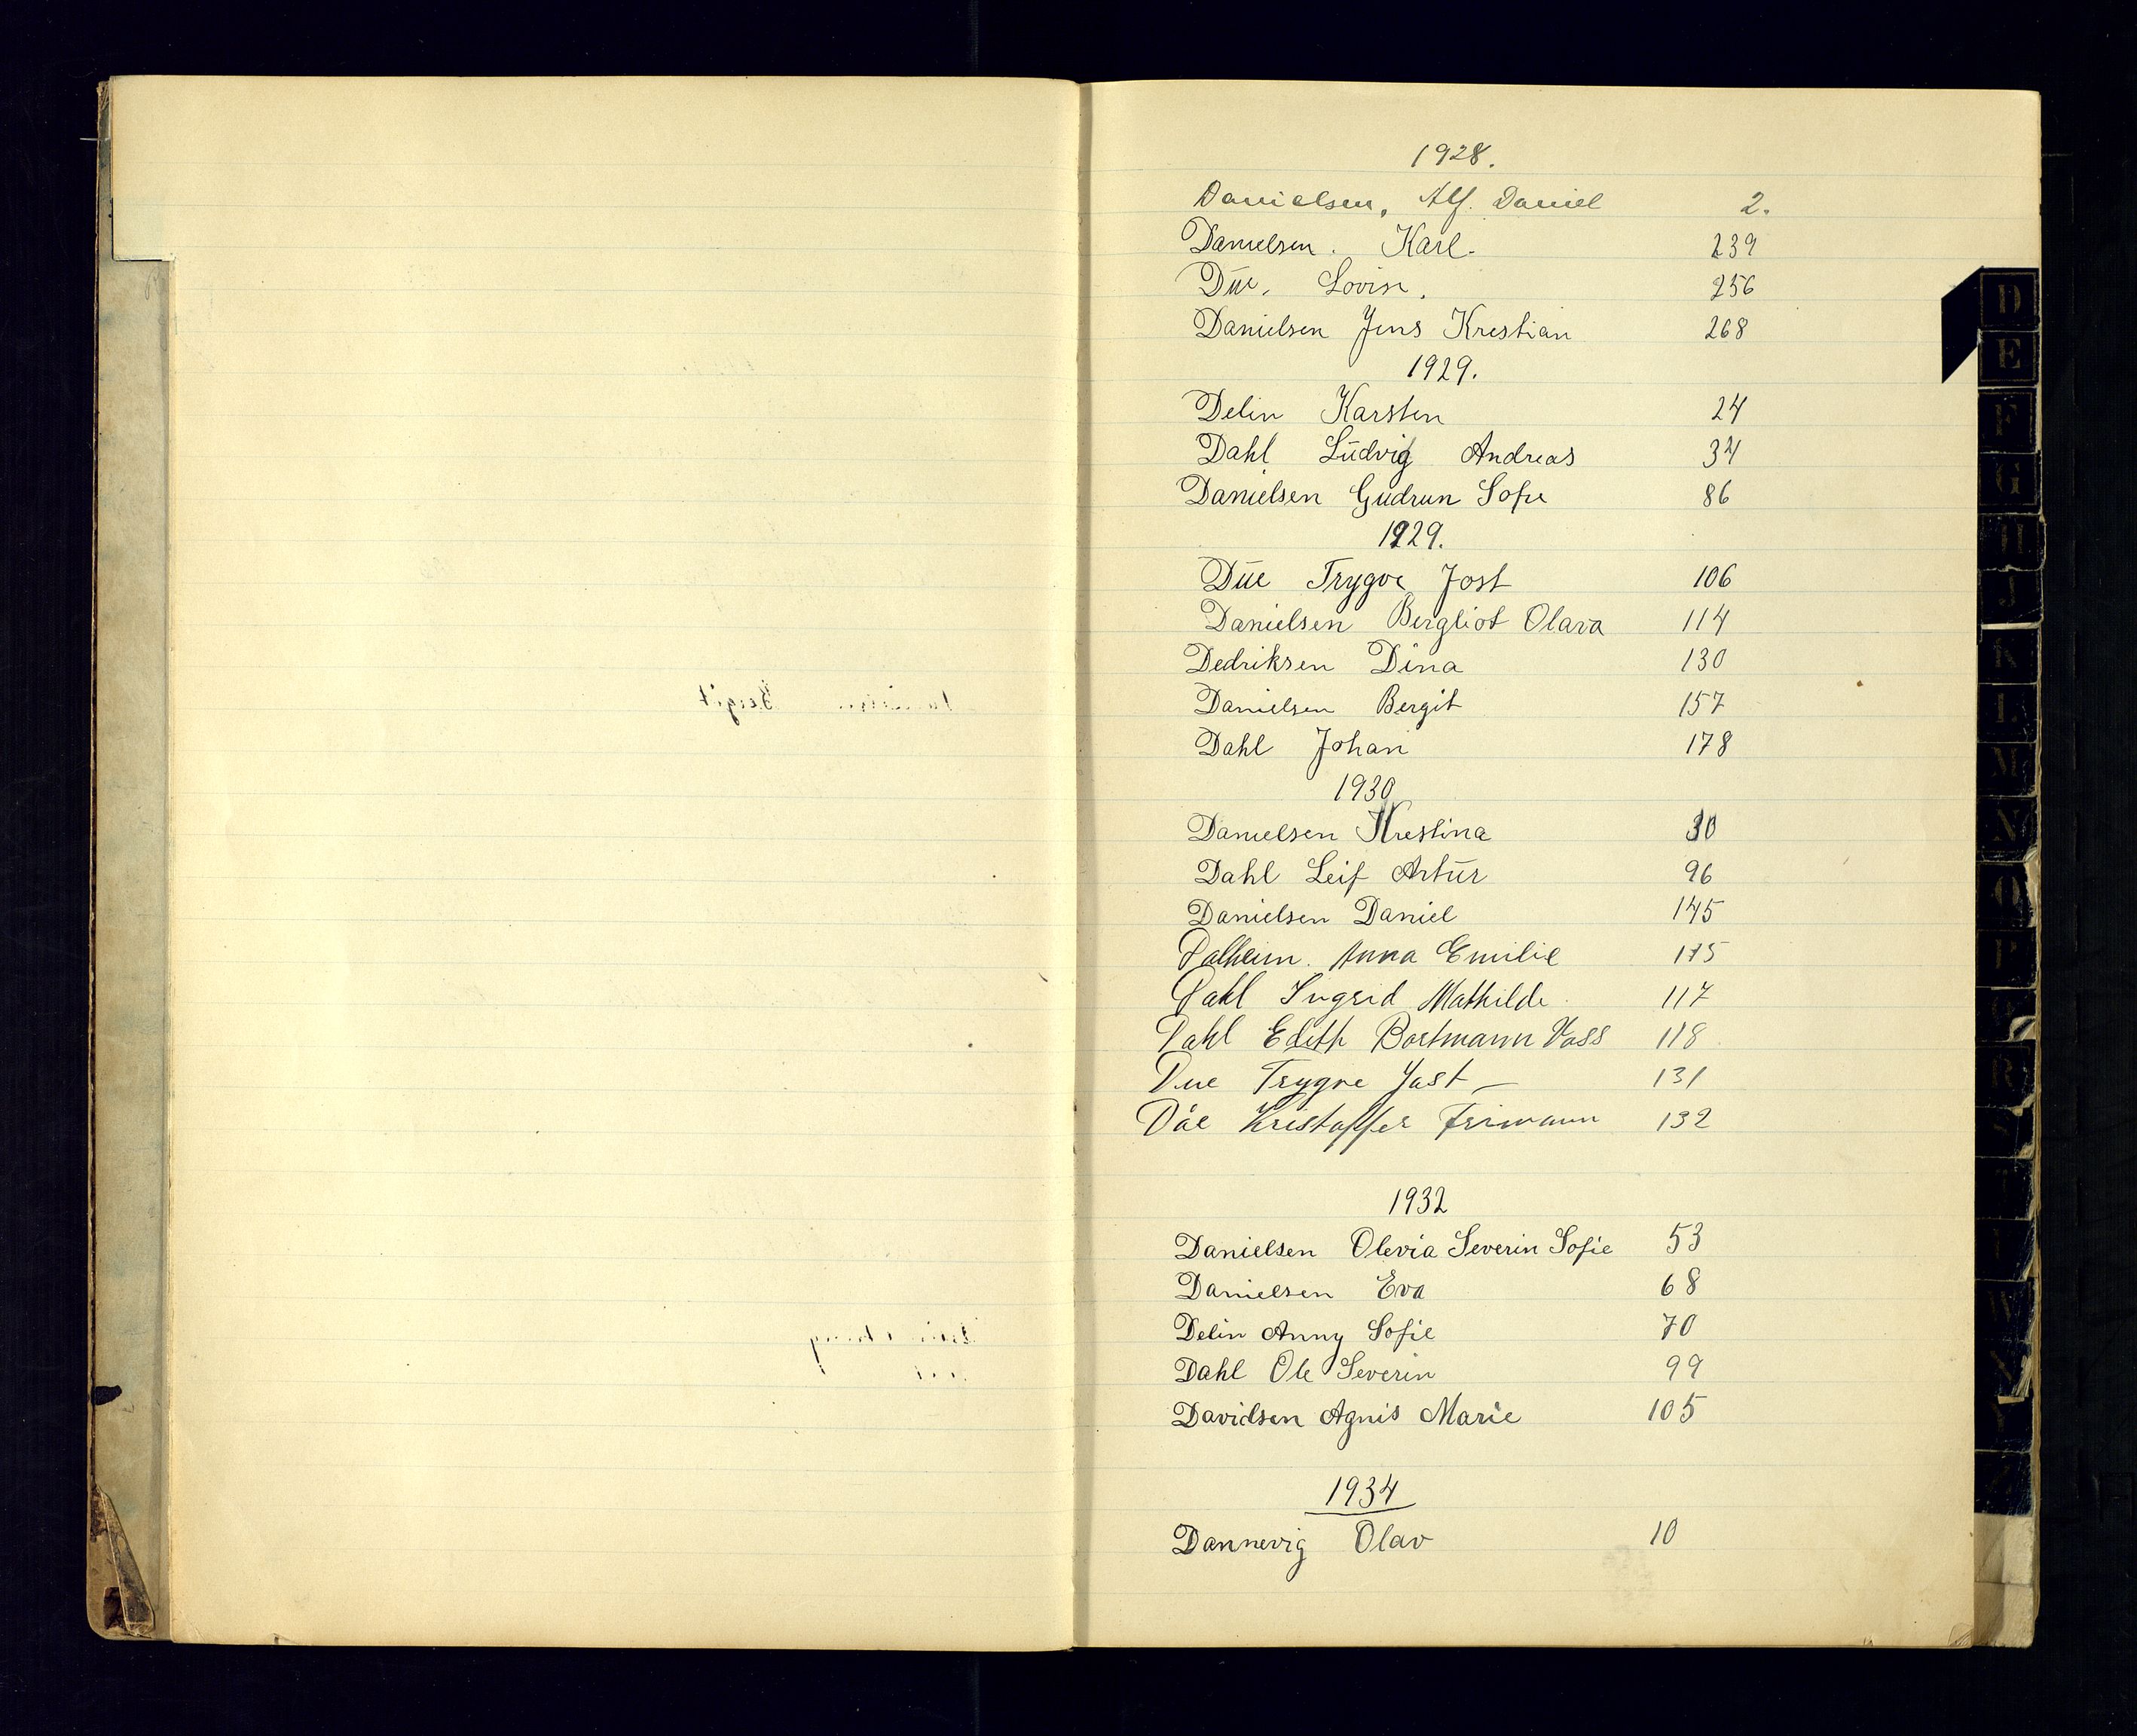 1928.
Danielsen, Alf. Daniel 2.
Danielsen. Karl. 239
Due, Lovise. 256
Danielsen Jens Krestian 268
1929.
Delin Karsten 24
Dahl Ludvig Andreas 34
Danielsen Gudrun Sofie 86
1929.
Due Trygve Jost 106
Danielsen Bergliot Olava 114
Dedriksen Dina 130
Danielsen Bergit 157
Dahl Johan 178
1930
Danielsen Krestina 30
Dahl Leif Artur 96
Danielsen Daniel 145
Dalheim. Anna Emilie 175
Dahl Ingrid Mathilde 117
Dahl Edith Bortmann Voss 118
Due Trygve Jast – 131
Dåe Kristoffer Frimann 132
1932
Danielsen Olevia Severin Sofie 53
Danielsen Eva 68
Delin Anny Sofie 70
Dahl Ole Severin 99
Davidsen Agnis Marie 105
1934
Dannevig Olav 10
D
E
F
G
H
J
K
L
M
N
O
P
R